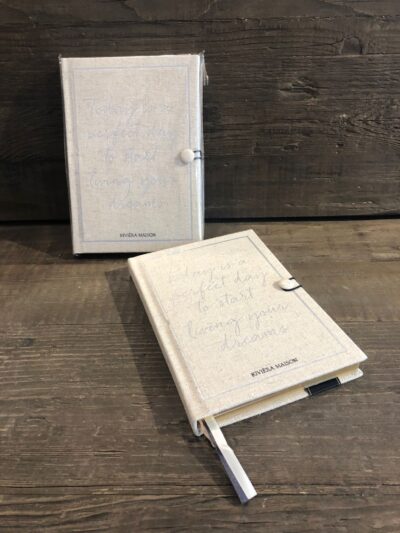 Today is a
perfect day
to start
living your
dreams
RIVIÈRA MAISON
Today is a
perfect day
to start
living your
dreams
RIVIÈRA MAISON